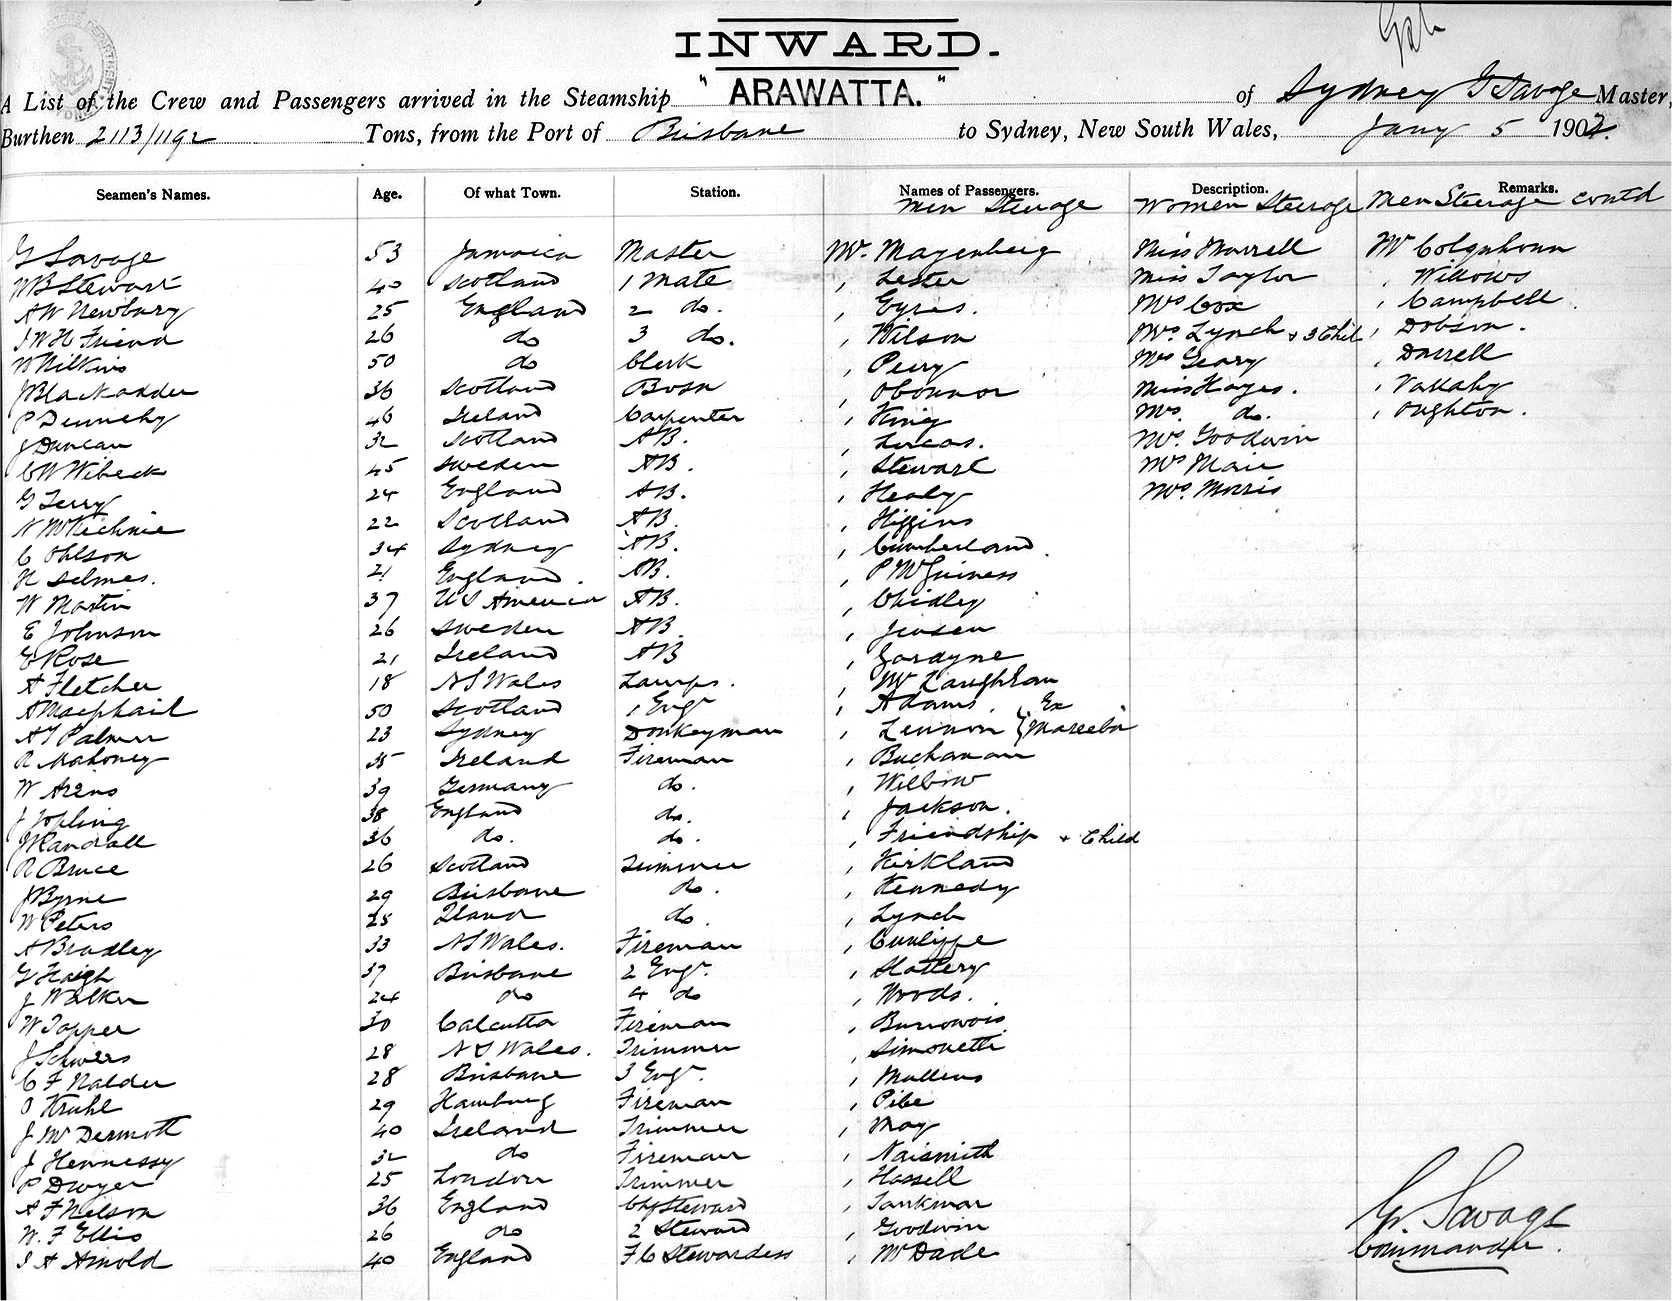 INWARD.
A List of the Crew and Passengers arrived in the Steamship "ARAWATTA." of Sydney G Savage Master,
Burthen 2113/1192 Tons, from the Port of Brisbane to Sydney, New South Wales, Jany 5 1902.
Seamen's Names. Age. Of what Town. Station. Names of Passengers. Description. Remarks.
Men Steerage Women Steerage Men Steerage contd
G Savage 53 Jamaica Master Mr. Mayenberg Miss Morrell Mr Colquhoun
W B Stewart 40 Scotland 1 Mate , Lester Miss Taylor , Willows
A W Newbury 25 England 2 do. , Eyres. Mrs Cox , Campbell
J W H Friend 26 do 3 do. , Wilson Mrs. Lynch & 3 Chil , Dobson.
W Wilkins 50 do Clerk , Perry Mrs Geary , Darrell
J Blackadder 36 Scotland Bosn , OConnor Miss Hayes. , Vallahy
P Dennehy 46 Ireland Carpenter , King Mrs. do. , Oughton.
J Duncan 32 Scotland AB. , Lucas. Mrs. Goodwin
C W Wibeck 45 Sweden AB. , Stewart Mrs Mair
G Terry 24 England AB. , Healy Mrs. Morris
N McKechnie 22 Scotland AB. , Higgins
C Ohlson 34 Sydney AB. , Cumberland.
H Selmes. 21 England. AB. , P McGuiness
W Martin 37 US America AB. , Chidley
E Johnson 26 Sweden AB. , Jensen
E Rose 21 Ireland AB , Gardyne
A Fletcher 18 N S Wales Lamps. , McLaughlan
A Macphail 50 Scotland 1 Engr , Adams. Ex
A J Palmer 23 Sydney Donkeyman , Lennon } Mareeba
R Mahoney 35 Ireland Fireman , Buchanan
W Arens 39 Germany do. , Wilbow
J Jopling 38 England do. , Jackson.
J Randall 36 do. do. , Friendship & Child
R Bruce 26 Scotland Trimmer , Kirkland
J Byrne 29 Brisbane do. , Kennedy
W Peters 25 do. , Lynch
A Bradley 33 N S Wales. Fireman , Cunliffe
G Haigh 37 Brisbane 2 Engr. , Slattery
J Walker 24 do 4 do , Woods.
W Topper 30 Calcutta Fireman , Burrowois
J Schwers 28 N S Wales. Trimmer , Simonetti
C F Nalder 28 Brisbane 3 Engr. , Mullens
O Kruhl 29 Hamburg Fireman , Pibe
J McDermott 40 Ireland Trimmer , May
J Hennessy 32 do Fireman , Naismith
P Dwyer 25 London Trimmer , Hassell
A F Nelson 36 England Chf Steward , Tankmar
W. F Ellis 26 do 2 Steward , Goodwin
J A Arnold 40 England F C Stewardess , McDade
G. Savage
Commander.